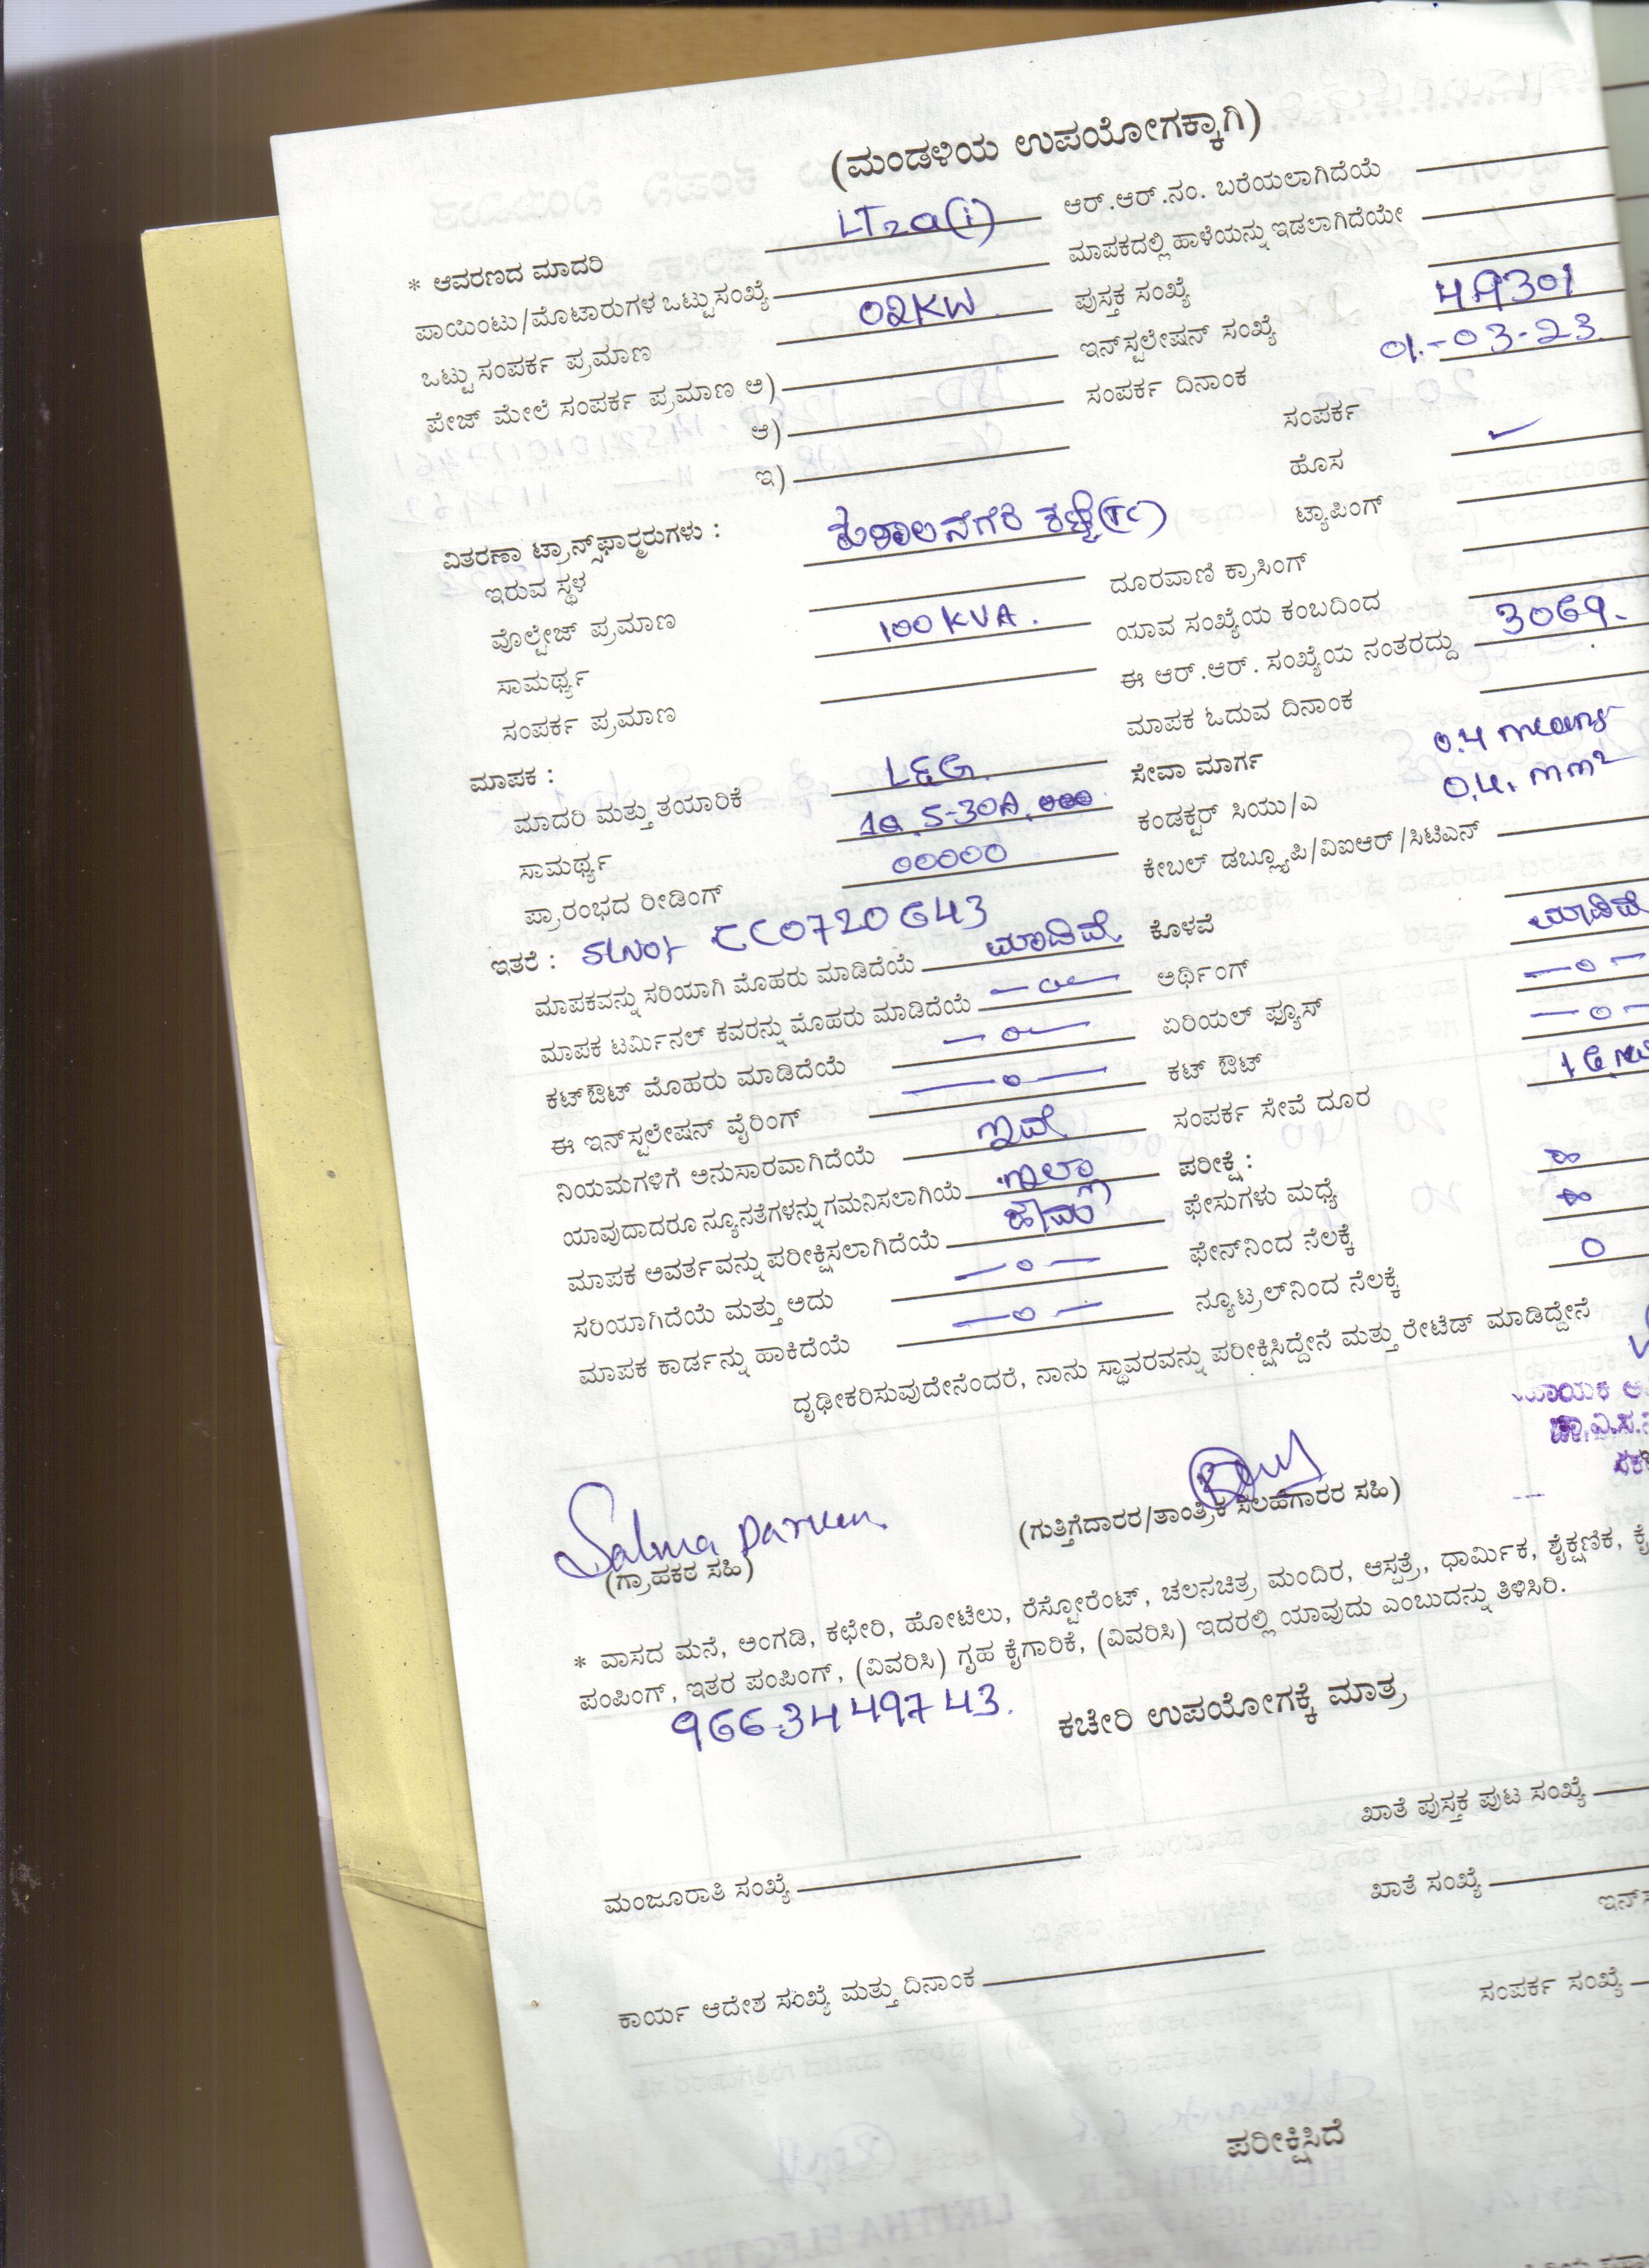 (ಮಂಡಳಿಯ ಉಪಯೋಗಕ್ಕಾಗಿ)
* ಆವರಣದ ಮಾದರಿ LT2a(i) ಆರ್.ಆರ್.ನಂ. ಬರೆಯಲಾಗಿದೆಯೆ
ಪಾಯಿಂಟು/ಮೊಟಾರುಗಳ ಒಟ್ಟು ಸಂಖ್ಯೆ ಮಾಪಕದಲ್ಲಿ ಹಾಳೆಯನ್ನು ಇಡಲಾಗಿದೆಯೇ
ಒಟ್ಟು ಸಂಪರ್ಕ ಪ್ರಮಾಣ 02KW ಪುಸ್ತಕ ಸಂಖ್ಯೆ
ಪೇಜ್ ಮೇಲೆ ಸಂಪರ್ಕ ಪ್ರಮಾಣ ಅ) ಇನ್‌ಸ್ಟಲೇಷನ್ ಸಂಖ್ಯೆ 4A301
ಆ) ಸಂಪರ್ಕ ದಿನಾಂಕ 01-03-23
ಇ) ಸಂಪರ್ಕ
ಹೊಸ ✓
ವಿತರಣಾ ಟ್ರಾನ್ಸ್‌ಫಾರ್ಮರುಗಳು : ಟ್ಯಾಪಿಂಗ್
ಇರುವ ಸ್ಥಳ
ವೊಲ್ಟೇಜ್ ಪ್ರಮಾಣ ದೂರವಾಣಿ ಕ್ರಾಸಿಂಗ್
ಸಾಮರ್ಥ್ಯ 100 KVA. ಯಾವ ಸಂಖ್ಯೆಯ ಕಂಬದಿಂದ
ಸಂಪರ್ಕ ಪ್ರಮಾಣ ಈ ಆರ್.ಆರ್. ಸಂಖ್ಯೆಯ ನಂತರದ್ದು 3069.
ಮಾಪಕ : ಮಾಪಕ ಓದುವ ದಿನಾಂಕ
ಮಾದರಿ ಮತ್ತು ತಯಾರಿಕೆ L&G. ಸೇವಾ ಮಾರ್ಗ
ಸಾಮರ್ಥ್ಯ 5-30A. ಕಂಡಕ್ಟರ್ ಸಿಯು/ಎ 0.4 mm2
ಪ್ರಾರಂಭದ ರೀಡಿಂಗ್ 00000 ಕೇಬಲ್ ಡಬ್ಲ್ಯೂಪಿ/ವಿಐಆರ್/ಸಿಟಿಎನ್
ಇತರೆ : SlNo CC0720643
ಮಾಪಕವನ್ನು ಸರಿಯಾಗಿ ಮೊಹರು ಮಾಡಿದೆಯೆ ಮಾಡಿದೆ ಕೊಳವೆ
ಮಾಪಕ ಟರ್ಮಿನಲ್ ಕವರನ್ನು ಮೊಹರು ಮಾಡಿದೆಯೆ —0— ಅರ್ಥಿಂಗ್ ಮಾಡಿದೆ
ಕಟ್‌ಔಟ್ ಮೊಹರು ಮಾಡಿದೆಯೆ —0— ಏರಿಯಲ್ ಫ್ಯೂಸ್ —0—
ಈ ಇನ್‌ಸ್ಟಲೇಷನ್ ವೈರಿಂಗ್ —0— ಕಟ್ ಔಟ್ —0—
ನಿಯಮಗಳಿಗೆ ಅನುಸಾರವಾಗಿದೆಯೆ ಇದೆ ಸಂಪರ್ಕ ಸೇವೆ ದೂರ
ಯಾವುದಾದರೂ ನ್ಯೂನತೆಗಳನ್ನು ಗಮನಿಸಲಾಗಿಯೆ ಇಲ್ಲಾ ಪರೀಕ್ಷೆ :
ಮಾಪಕ ಅವರ್ತವನ್ನು ಪರೀಕ್ಷಿಸಲಾಗಿದೆಯೆ ಹೌದು ಫೇಸುಗಳು ಮಧ್ಯೆ
ಸರಿಯಾಗಿದೆಯೆ ಮತ್ತು ಅದು —0— ಫೇನ್‌ನಿಂದ ನೆಲಕ್ಕೆ
ಮಾಪಕ ಕಾರ್ಡನ್ನು ಹಾಕಿದೆಯೆ —0— ನ್ಯೂಟ್ರಲ್‌ನಿಂದ ನೆಲಕ್ಕೆ 0
ದೃಢೀಕರಿಸುವುದೇನೆಂದರೆ, ನಾನು ಸ್ಥಾವರವನ್ನು ಪರೀಕ್ಷಿಸಿದ್ದೇನೆ ಮತ್ತು ರೇಟೆಡ್ ಮಾಡಿದ್ದೇನೆ
Salma Parveen
(ಗ್ರಾಹಕರ ಸಹಿ) (ಗುತ್ತಿಗೆದಾರರ/ತಾಂತ್ರಿಕ ಸಲಹೆಗಾರರ ಸಹಿ)
* ವಾಸದ ಮನೆ, ಅಂಗಡಿ, ಕಛೇರಿ, ಹೋಟೆಲು, ರೆಸ್ಟೋರೆಂಟ್, ಚಲನಚಿತ್ರ ಮಂದಿರ, ಆಸ್ಪತ್ರೆ, ಧಾರ್ಮಿಕ, ಶೈಕ್ಷಣಿಕ,
ಪಂಪಿಂಗ್, ಇತರ ಪಂಪಿಂಗ್, (ವಿವರಿಸಿ) ಗೃಹ ಕೈಗಾರಿಕೆ, (ವಿವರಿಸಿ) ಇದರಲ್ಲಿ ಯಾವುದು ಎಂಬುದನ್ನು ತಿಳಿಸಿರಿ.
96634449743.
ಕಚೇರಿ ಉಪಯೋಗಕ್ಕೆ ಮಾತ್ರ
ಖಾತೆ ಪುಸ್ತಕ ಪುಟ ಸಂಖ್ಯೆ
ಮಂಜೂರಾತಿ ಸಂಖ್ಯೆ ಖಾತೆ ಸಂಖ್ಯೆ
ಕಾರ್ಯ ಆದೇಶ ಸಂಖ್ಯೆ ಮತ್ತು ದಿನಾಂಕ ಸಂಪರ್ಕ ಸಂಖ್ಯೆ
ಪರೀಕ್ಷಿಸಿದೆ